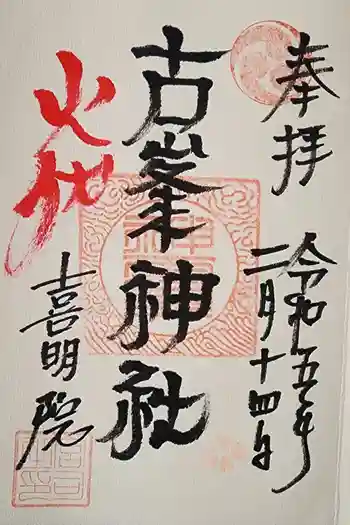 奉拝
令和五年
二月十四日
古峯神社
火伏
喜明院